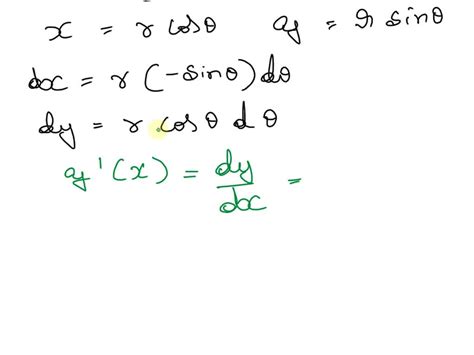 x = r cosθ y = r sinθ
dx = r (-sinθ) dθ
dy = r cosθ dθ
y'(x) = dy/dx =